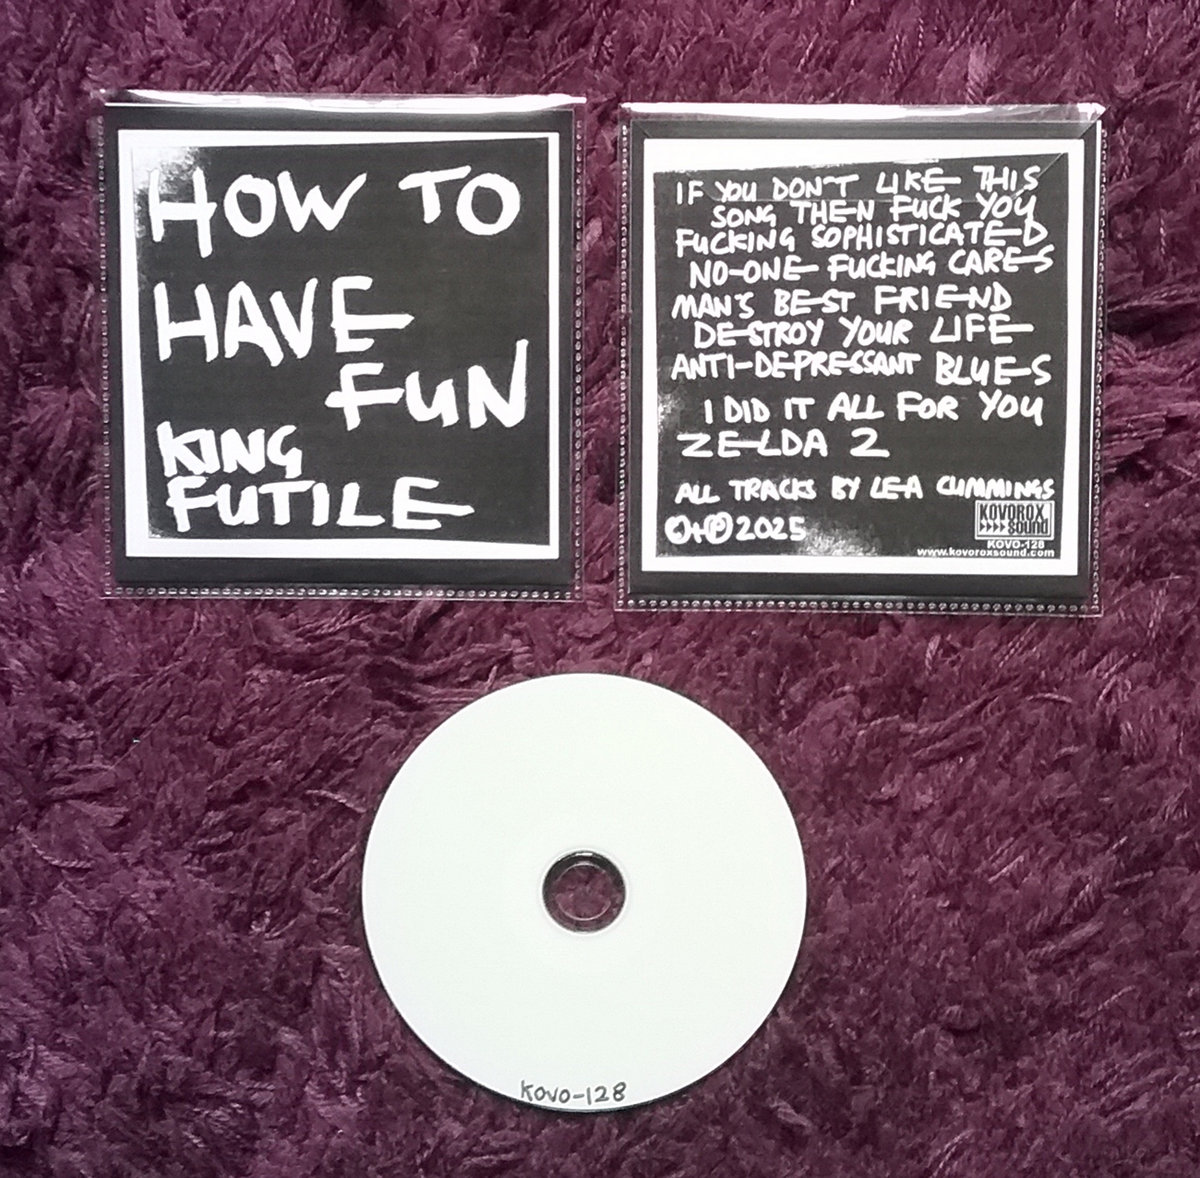 HOW TO
HAVE
FUN
KING
FUTILE
IF YOU DON'T LIKE THIS
SONG THEN FUCK YOU
FUCKING SOPHISTICATED
NO-ONE FUCKING CARES
MAN'S BEST FRIEND
DESTROY YOUR LIFE
ANTI-DEPRESSANT BLUES
I DID IT ALL FOR YOU
ZELDA 2
ALL TRACKS BY LEA CUMMINGS
©+℗ 2025
KOVOROX
sound
KOVO-128
www.kovoroxsound.com
KOVO-128